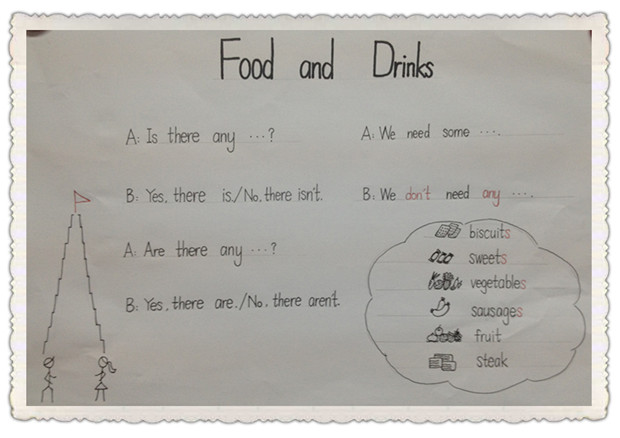 Food and Drinks
A: Is there any ...?
B: Yes, there is./No, there isn't.
A: Are there any ...?
B: Yes, there are./No, there aren't.
A: We need some ....
B: We don't need any ....
biscuits
sweets
vegetables
sausages
fruit
steak